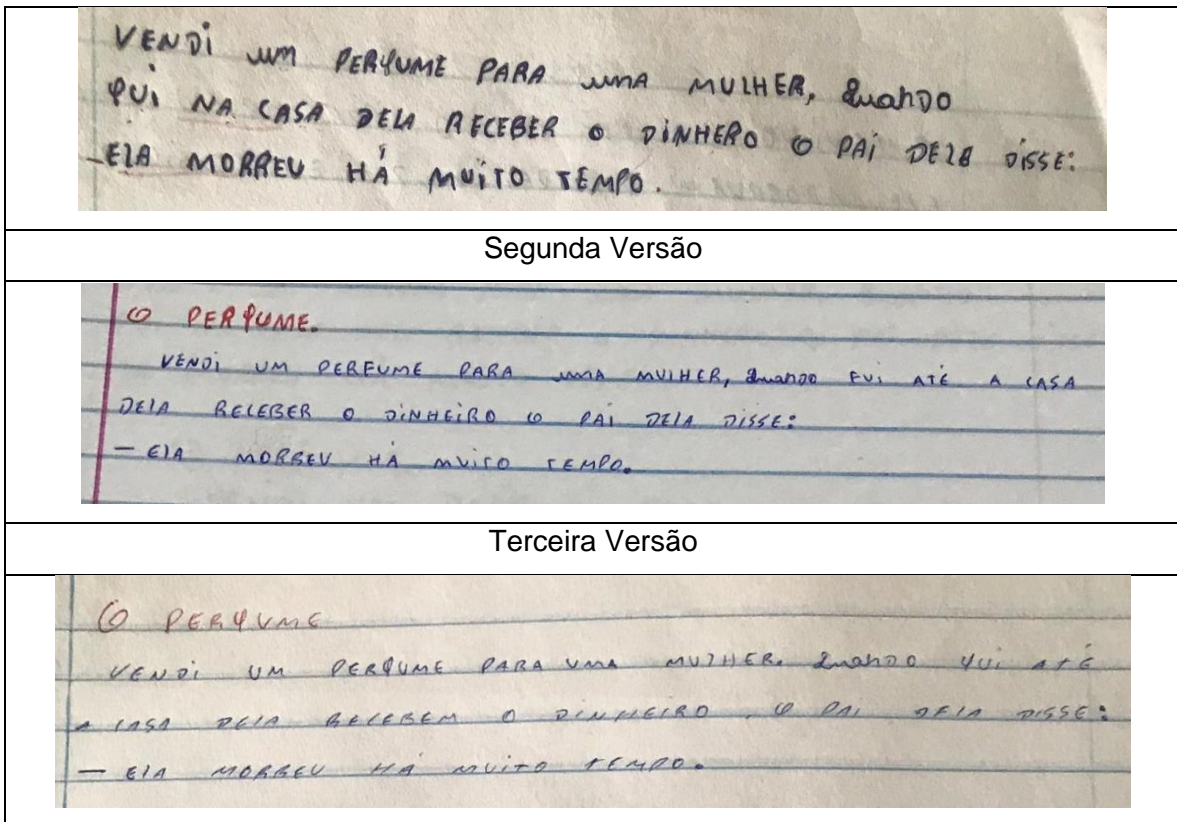 VENDI um PERFUME PARA uma MULHER, quando
FUI NA CASA DELA RECEBER O DINHERO O PAI DELA DISSE:
-ELA MORREU HÁ MUITO TEMPO.
Segunda Versão
O PERFUME.
VENDI UM PERFUME PARA uma MULHER, quando FUI ATÉ A CASA
DELA RECEBER O DINHEIRO O PAI DELA DISSE:
- ELA MORREU HÁ MUITO TEMPO.
Terceira Versão
O PERFUME
VENDI UM PERFUME PARA UMA MULHER. quando FUI ATÉ
A CASA DELA RECEBEM O DINHEIRO, O PAI DELA DISSE:
- ELA MORREU HÁ MUITO TEMPO.